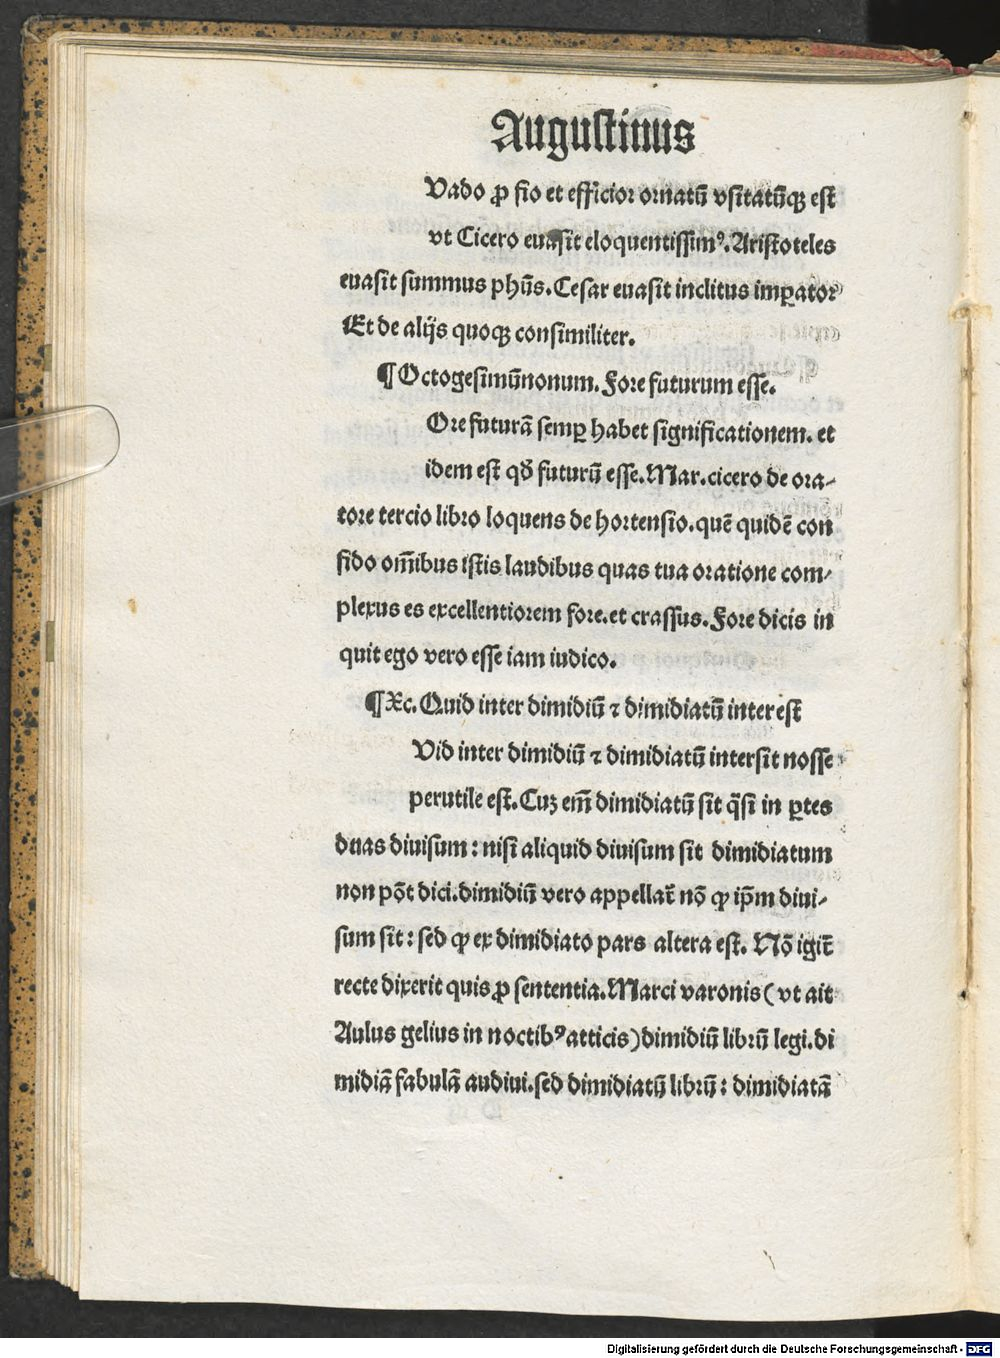 Augustinus
Vado ꝓ fio et efficior ornatū vsitatūqꝫ est
vt Cicero euasit eloquentissimꝰ. Aristoteles
euasit summus phūs. Cesar euasit inclitus imꝑator
Et de alijs quoqꝫ consimiliter.
¶ Octogesimūnonum. Fore futurum esse.
Ore futurā semꝑ habet significationem. et
idem est qđ futurū esse. Mar. cicero de ora-
tore tercio libro loquens de hortensio. quē quidē con
fido om̄ibus istis laudibus quas tua oratione com-
plexus es excellentiorem fore. et crassus. Fore dicis in
quit ego vero esse iam iudico.
¶ Xc. Quid inter dimidiū ⁊ dimidiatū interest
Vid inter dimidiū ⁊ dimidiatū intersit nosse
perutile est. Cuꝫ em̄ dimidiatū sit q̄si in ꝑtes
duas diuisum: nisi aliquid diuisum sit dimidiatum
non pōt dici. dimidiū vero appellat̄ nō ꝙ ip̄m diui-
sum sit: sed ꝙ ex dimidiato pars altera est. Nō igit̄
recte dixerit quis ꝓ sententia. Marci varonis (vt ait
Aulus gelius in noctibꝰ atticis) dimidiū librū legi. di
midiā fabulā audiui. sed dimidiatū librū: dimidiatā
Digitalisierung gefördert durch die Deutsche Forschungsgemeinschaft - DFG